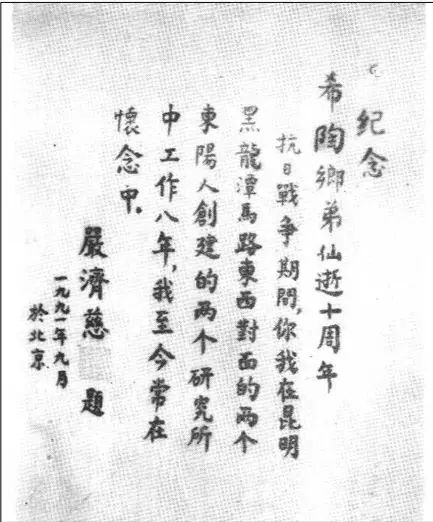 纪念
希陶鄉弟仙逝十周年
抗日戰争期間,你我在昆明
黑龍潭馬路東西對面的两个
東陽人創建的两个研究所
中工作八年,我至今常在
懷念中。
嚴濟慈 題
一九九一年九月
於北京